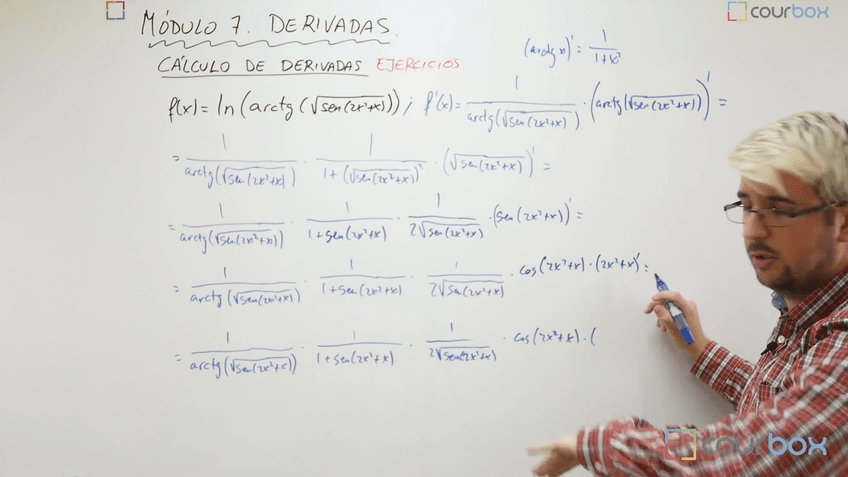 MÓDULO 7. DERIVADAS.
courbox
(arctg x)' = 1/(1+x²)
CÁLCULO DE DERIVADAS EJERCICIOS
f(x) = ln(arctg(√sen(2x²+x))) ; f'(x) = 1/arctg(√sen(2x²+x)) · (arctg(√sen(2x²+x)))' =
= 1/arctg(√sen(2x²+x)) · 1/(1+(√sen(2x²+x))²) · (√sen(2x²+x))' =
= 1/arctg(√sen(2x²+x)) · 1/(1+sen(2x²+x)) · 1/(2√sen(2x²+x)) · (sen(2x²+x))' =
= 1/arctg(√sen(2x²+x)) · 1/(1+sen(2x²+x)) · 1/(2√sen(2x²+x)) · cos(2x²+x) · (2x²+x)' =
= 1/arctg(√sen(2x²+x)) · 1/(1+sen(2x²+x)) · 1/(2√sen(2x²+x)) · cos(2x²+x) · (
courbox